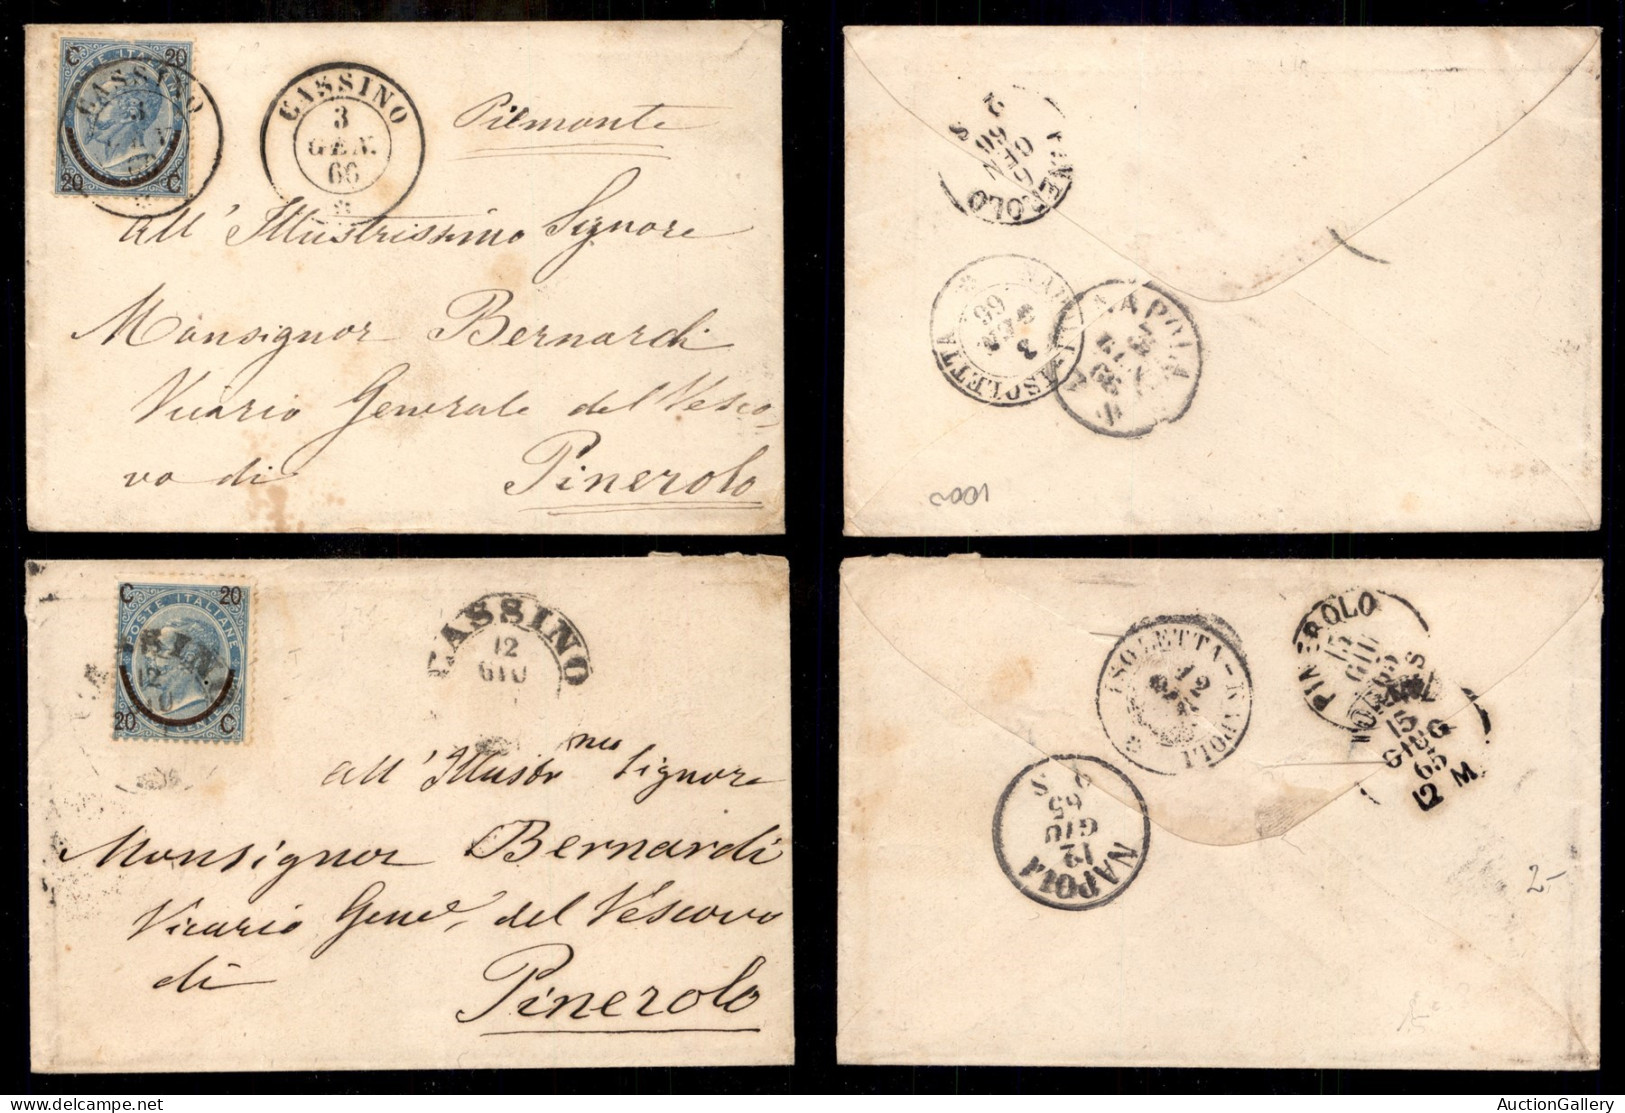 C 20
POSTE ITALIANE
CASSINO
3
66
20 C
CASSINO
3
GEN.
66
Piemonte
all' Illustrissimo Signore
Monsignor Bernardi
Vicario Generale del Vesco
vo di Pinerolo
PINEROLO
6
GEN
66
2 S
ISOLETTA
3
GEN
66
NAPOLI
1000
C 20
POSTE ITALIANE
CASSINO
12
20 CENTE C
CASSINO
12
GIU
all' Illustr.mo Signore
Monsignor Bernardi
Vicario Gene.e del Vescovo
di Pinerolo
ISOLETTA-NAPOLI
12
NAPOLI
12
GIU
65
9 S
PINEROLO
15
GIU
65
S
TORINO
15
GIUG
65
12 M
2-
AuctionGallery